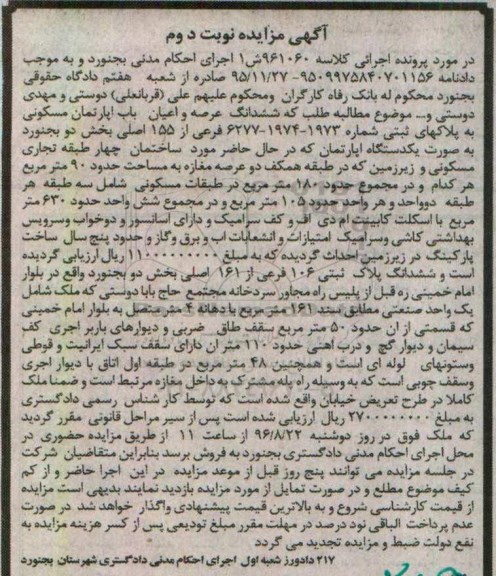 آگهی مزایده نوبت دوم
در مورد پرونده اجرائی کلاسه ۹۶۱۰۶۰ش۱ اجرای احکام مدنی بجنورد و به موجب
دادنامه ۹۵۰۹۹۷۵۸۴۰۷۰۱۱۵۶-۹۵/۱۱/۲۷ صادره از شعبه هفتم دادگاه حقوقی
بجنورد محکوم له بانک رفاه کارگران ومحکوم علیهم علی (قربانعلی) دوستی و مهدی
دوستی و... موضوع مطالبه طلب که ششدانگ عرصه و اعیان باب اپارتمان مسکونی
به پلاکهای ثبتی شماره ۱۹۷۳-۱۹۷۴-۶۲۷۷ فرعی از ۱۵۵ اصلی بخش دو بجنورد
به صورت یکدستگاه اپارتمان که در حال حاضر مورد ساختمان چهار طبقه تجاری
مسکونی و زیرزمین که در طبقه همکف دو عرصه مغازه به مساحت حدود ۹۰ متر مربع
هر کدام و در مجموع حدود ۱۸۰ متر مربع در طبقات مسکونی شامل سه طبقه هر
طبقه دوواحد و هر واحد حدود ۱۰۵ متر مربع و در مجموع شش واحد حدود ۶۳۰ متر
مربع با اسکلت کابینت ام دی اف و کف سرامیک و دارای اسانسور و دوخواب وسرویس
بهداشتی کاشی وسرامیک امتیازات و انشعابات اب و برق وگاز و حدود پنج سال ساخت
پارکینگ در زیرزمین احداث گردیده که به مبلغ ۱۱۰۰۰۰۰۰۰۰۰ ریال ارزیابی گردیده
است و ششدانگ پلاک ثبتی ۱۰۶ فرعی از ۱۶۱ اصلی بخش دو بجنورد واقع در بلوار
امام خمینی ره قبل از پلیس راه مجاور سردخانه مجتمع حاج بابا دوستی که ملک شامل
یک واحد صنعتی مطابق سند ۱۶۱ متر مربع با دهانه ۴ متر متصل به بلوار امام خمینی
که قسمتی از ان حدود ۵۰ متر مربع سقف طاق ضربی و دیوارهای باربر اجری کف
سیمان و دیوار گچ و درب اهنی حدود ۱۱۰ متر ان دارای سقف سبک ایرانیت و قوطی
وستونهای لوله ای است و همچنین ۴۸ متر مربع در طبقه اول اتاق با دیوار اجری
وسقف چوبی است که به وسیله راه پله مشترک به داخل مغازه مرتبط است و ضمنا ملک
کاملا در طرح تعریض خیابان واقع شده است که توسط کارشناس رسمی دادگستری
به مبلغ ۲۷۰۰۰۰۰۰۰۰ ریال ارزیابی شده است پس از سیر مراحل قانونی مقرر گردید
که ملک فوق در روز دوشنبه ۹۶/۸/۲۲ از ساعت ۱۱ از طریق مزایده حضوری در
محل اجرای احکام مدنی دادگستری بجنورد به فروش برسد بنابراین متقاضیان شرکت
در جلسه مزایده می توانند پنج روز قبل از موعد مزایده در این اجرا حاضر و از کم
کیف موضوع مطلع و در صورت تمایل از مورد مزایده بازدید نمایند بدیهی است مزایده
از قیمت کارشناسی شروع و به بالاترین قیمت پیشنهادی واگذار خواهد شد در صورت
عدم پرداخت الباقی نود درصد در مهلت مقرر مبلغ تودیعی پس از کسر هزینه مزایده به
نفع دولت ضبط و مزایده تجدید می گردد
۲۱۷ دادورز شعبه اول اجرای احکام مدنی دادگستری شهرستان بجنورد